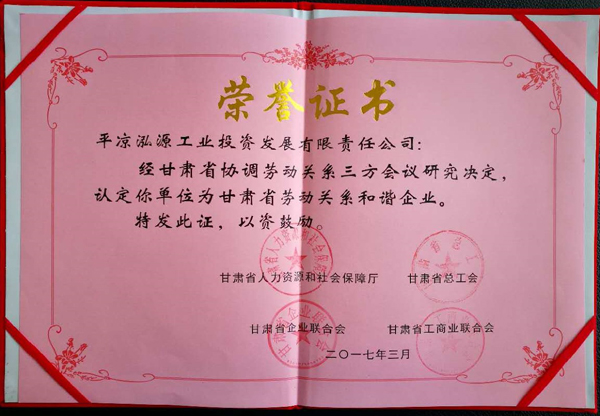 荣誉证书
平凉泓源工业投资发展有限责任公司：
经甘肃省协调劳动关系三方会议研究决定，
认定你单位为甘肃省劳动关系和谐企业。
特发此证，以资鼓励。
甘肃省人力资源和社会保障厅 甘肃省总工会
甘肃省企业联合会 甘肃省工商业联合会
二〇一七年三月